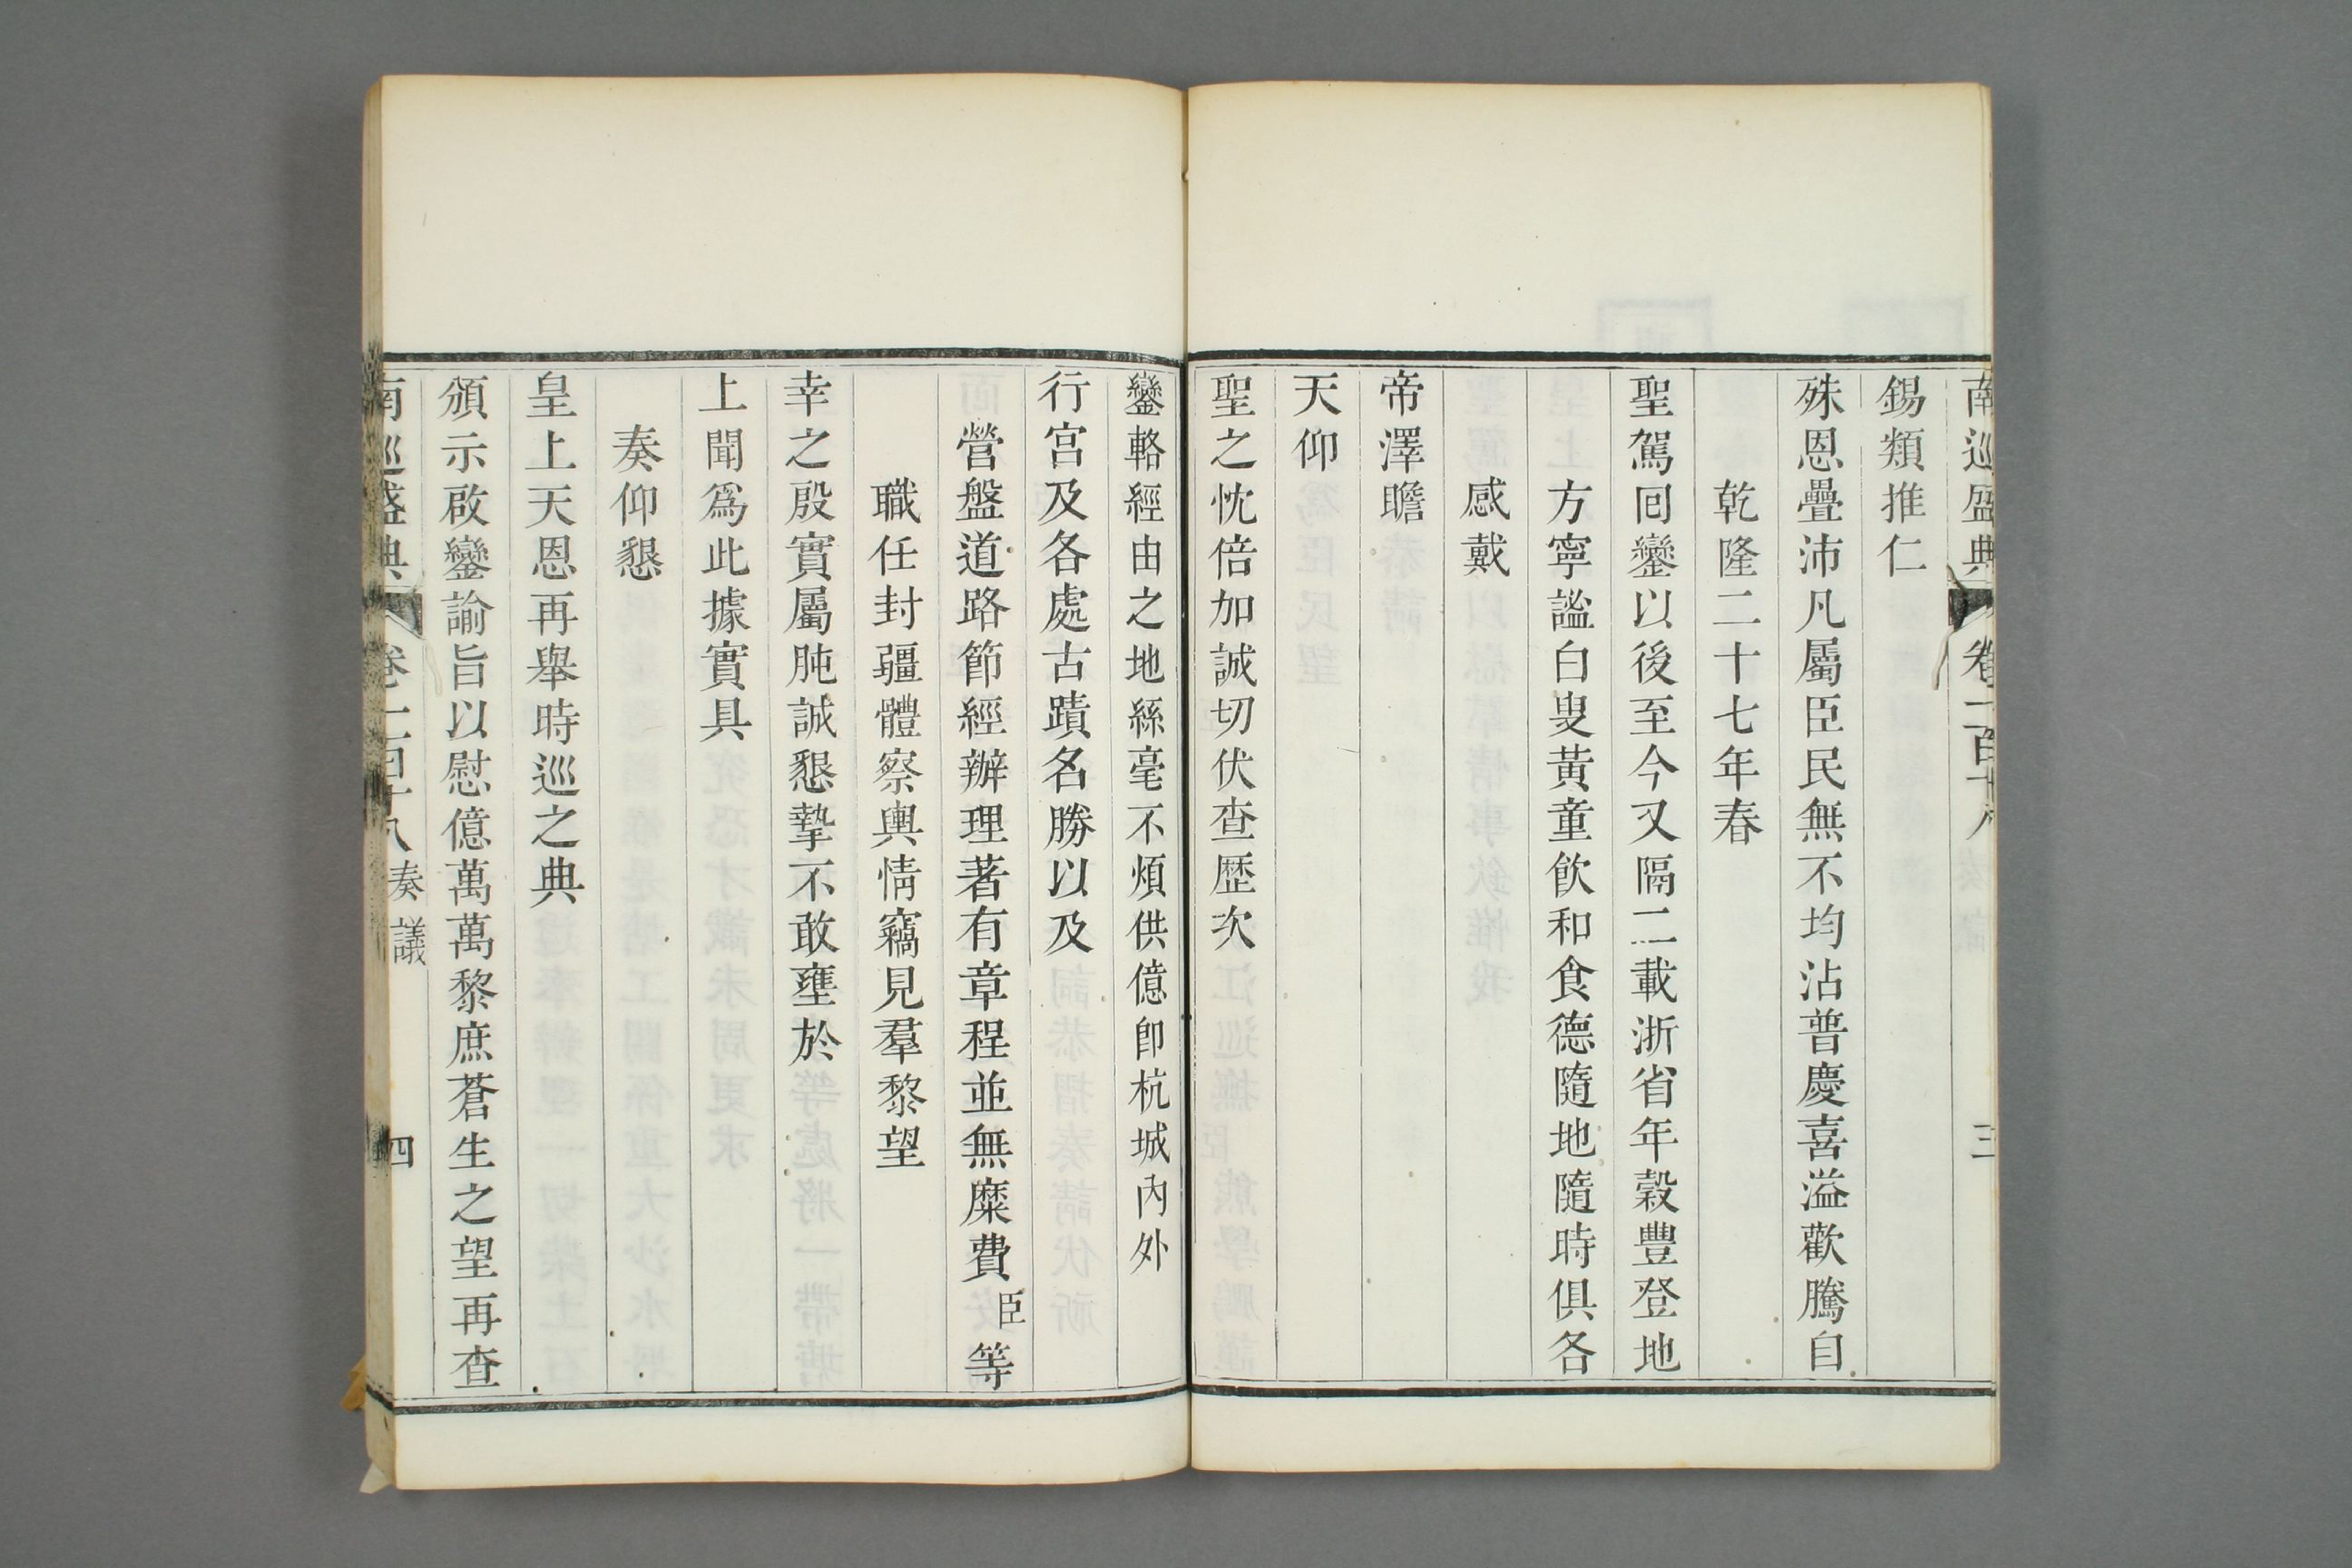 南巡盛典 卷一百十八 三
錫類推仁
殊恩疊沛凡屬臣民無不均沾普慶喜溢歡騰自
乾隆二十七年春
聖駕回鑾以後至今又隔二載浙省年穀豐登地
方寧謐白叟黃童飲和食德隨地隨時俱各
感戴
帝澤瞻
天仰
聖之忱倍加誠切伏查歷次
鑾輅經由之地絲毫不煩供億卽杭城內外
行宮及各處古蹟名勝以及
營盤道路節經辦理著有章程並無糜費臣等
職任封疆體察輿情竊見羣黎望
幸之殷實屬肫誠懇摯不敢壅於
上聞爲此據實具
奏仰懇
皇上天恩再舉時巡之典
頒示啟鑾諭旨以慰億萬萬黎庶蒼生之望再查
南巡盛典 卷一百十八 奏議 四